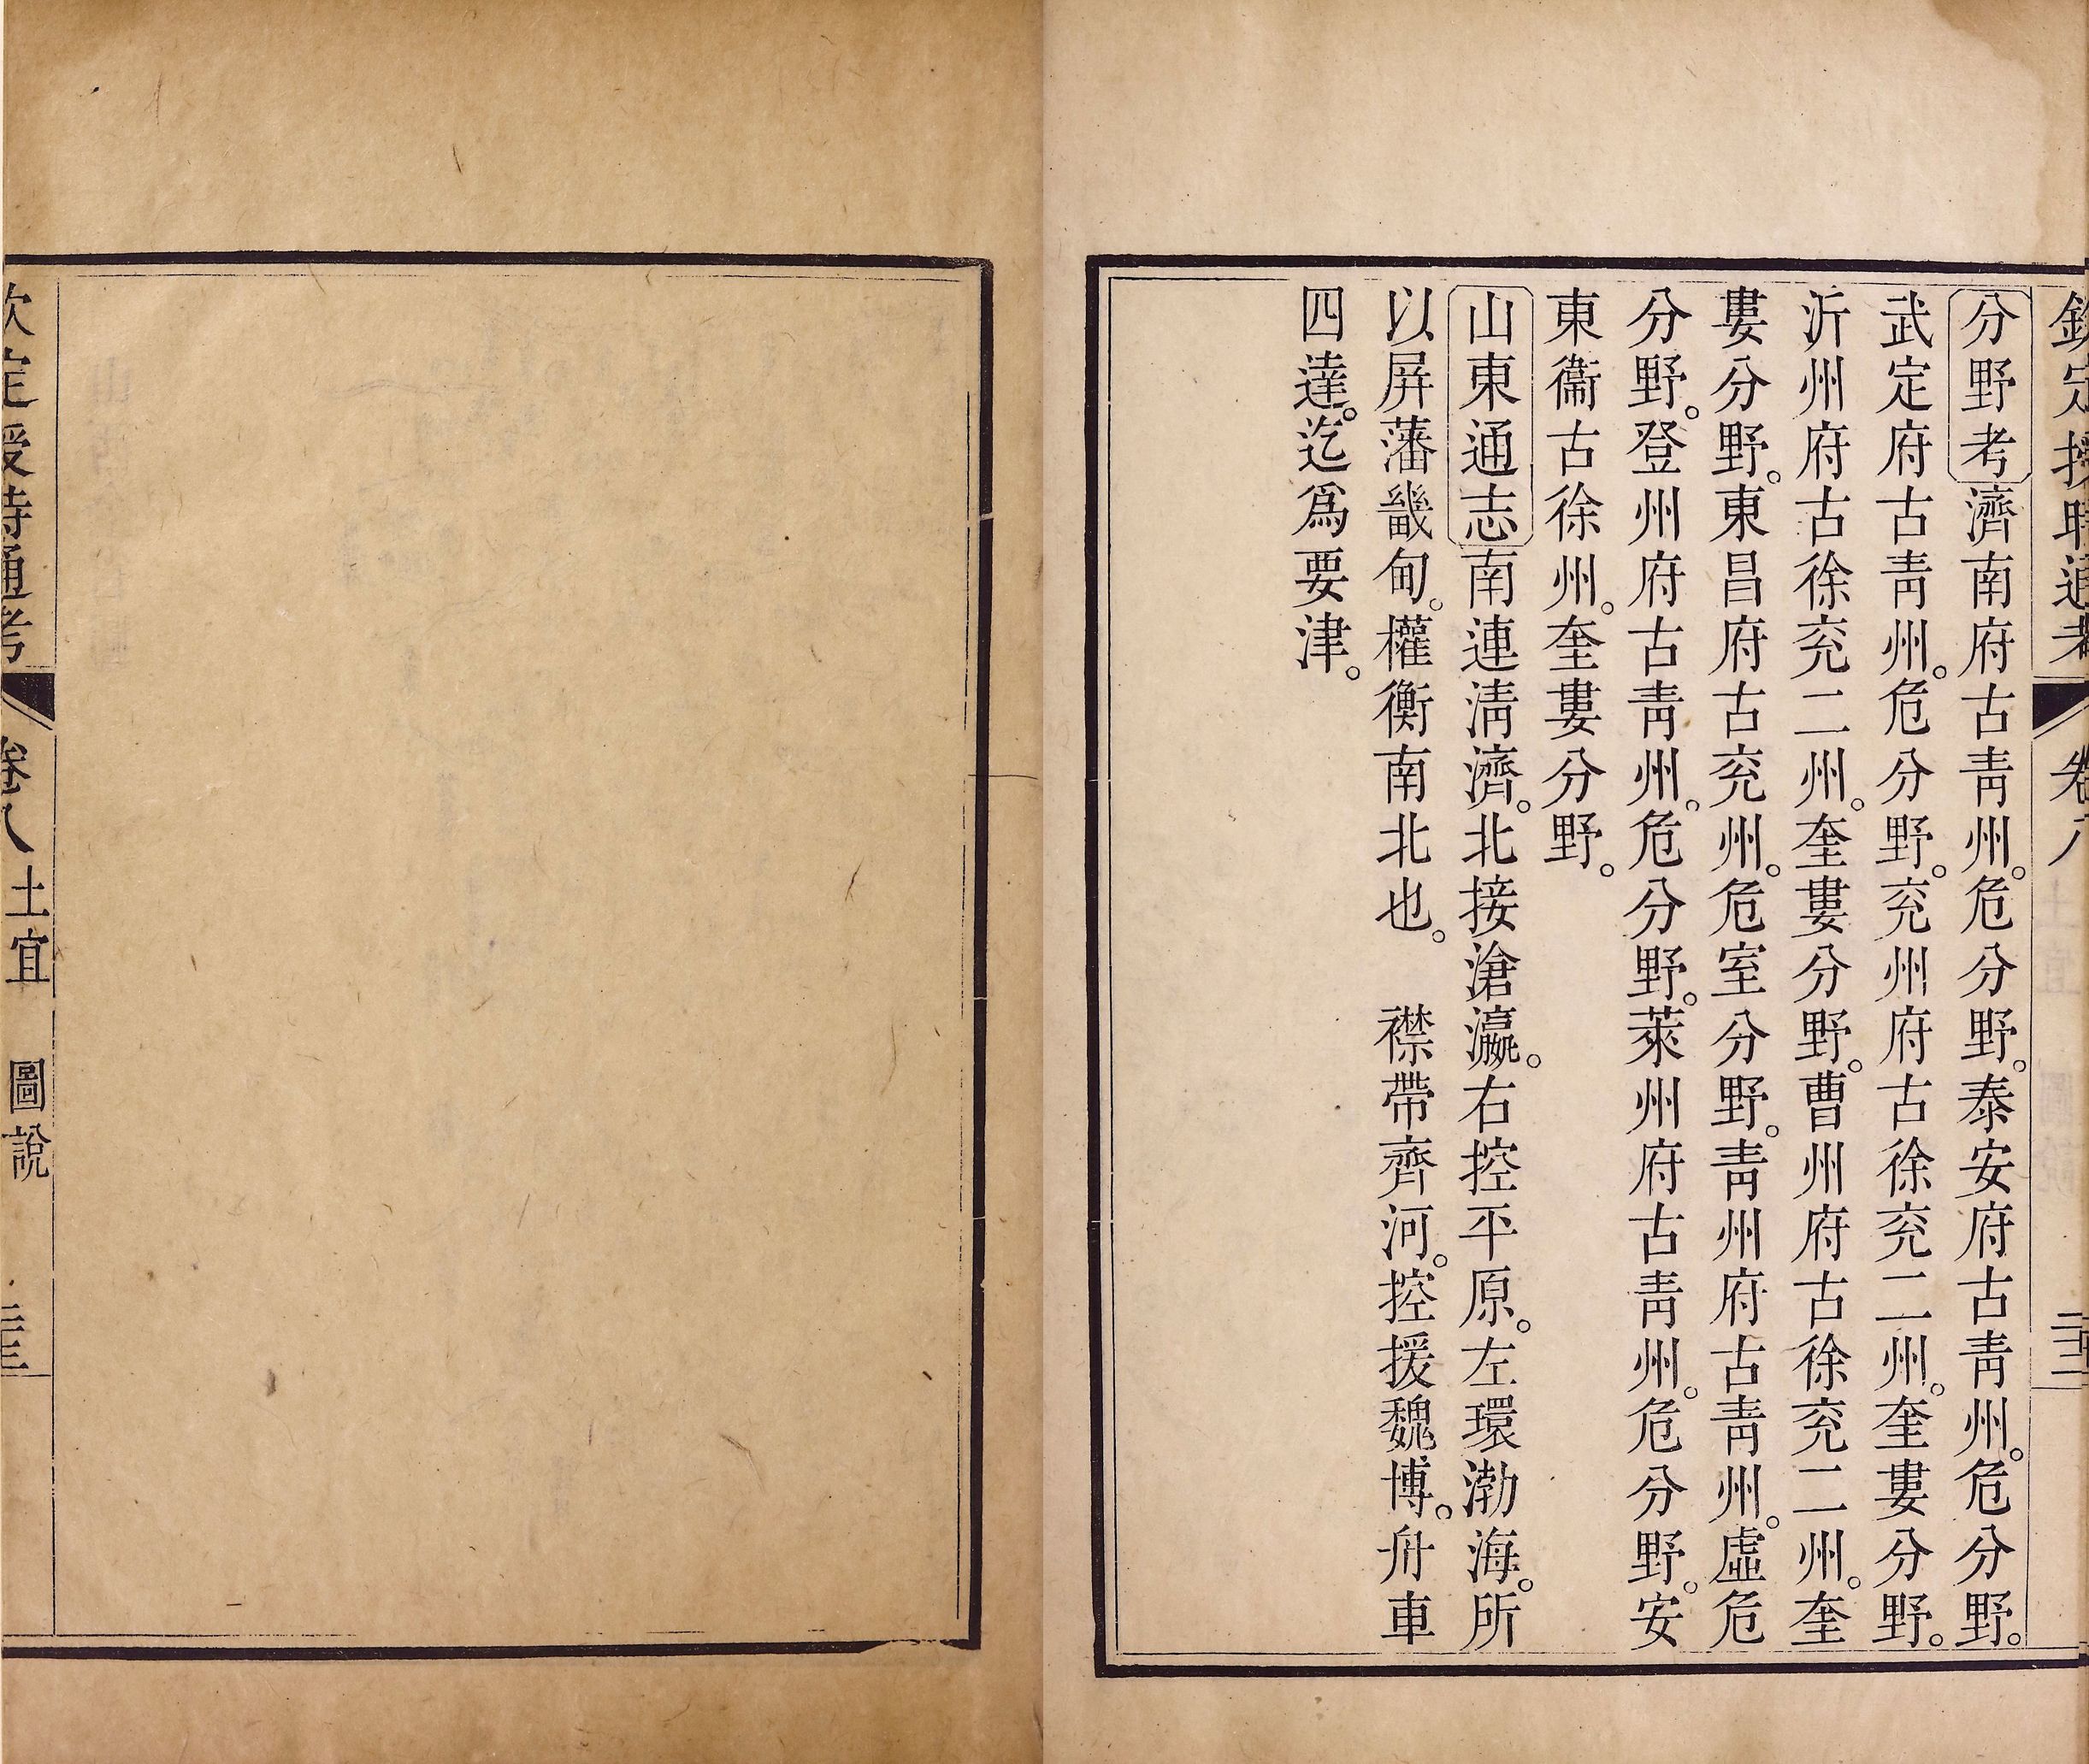 欽定授時通考 卷八
分野考濟南府古靑州。危分野。泰安府古靑州。危分野。
武定府古靑州。危分野。兖州府古徐兖二州。奎婁分野。
沂州府古徐兖二州。奎婁分野。曹州府古徐兖二州。奎
婁分野。東昌府古兖州。危室分野。靑州府古靑州。虛危
分野。登州府古靑州。危分野。萊州府古靑州。危分野。安
東衞古徐州。奎婁分野。
山東通志南連淸濟。北接滄瀛。右控平原。左環渤海。所
以屛藩畿甸。權衡南北也。　襟帶齊河。控援魏博。舟車
四達。迄爲要津。
欽定授時通考 卷八 土宜 圖說